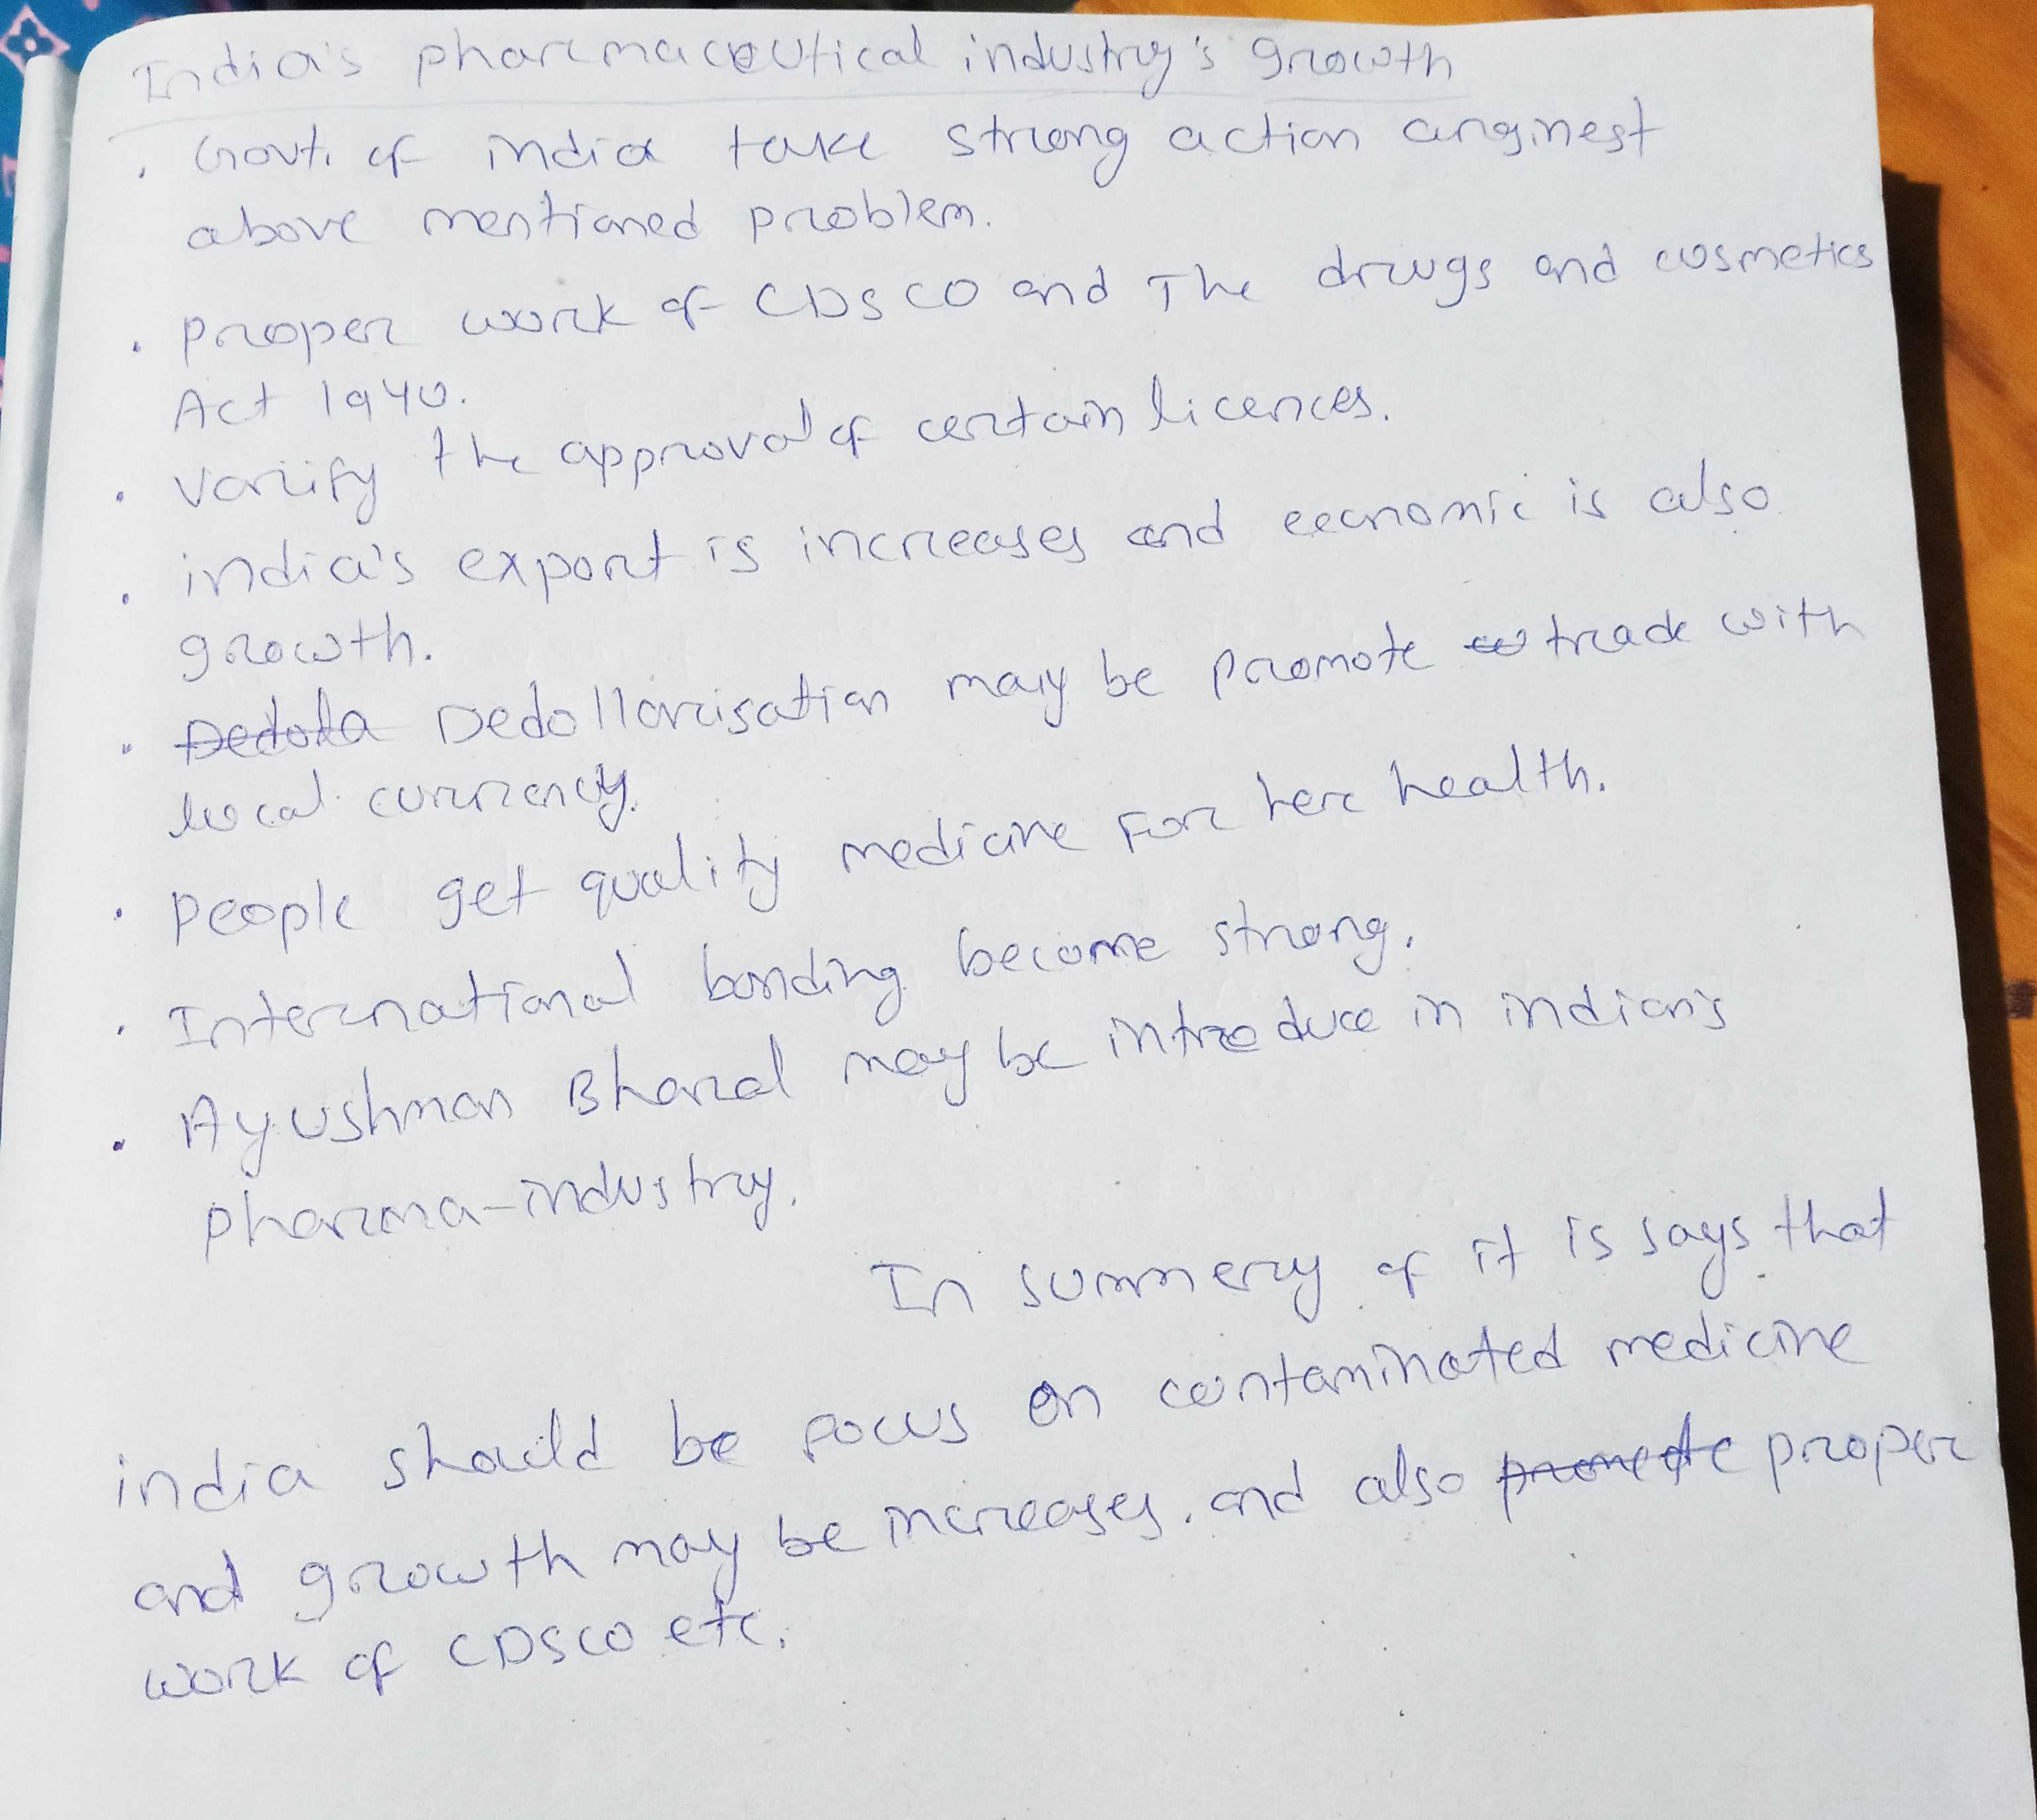 India's pharmaceutical industry's growth
. Govt. of india take strong action anginest
above mentioned problem.
. proper work of CDSCO and The drugs and cosmetics
Act 1940.
. varify the approval of certain licences.
. india's export is increases and economic is also
growth.
. Dedolla Dedollarisation may be promote trade with
local currency.
. people get quality medicine for her health.
. International bonding become strong.
. Ayushman Bharat may be introduce in indian's
pharma-industry.
In summery of it is says that
india should be focus on contaminated medicine
and growth may be increases. and also promote proper
work of CDSCO etc.